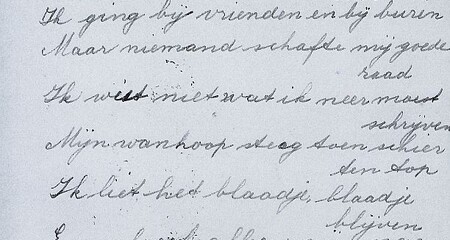 Ik ging bij vrienden en bij buren
Maar niemand schafte mij goede
raad
Ik wist niet wat ik neer moest
schrijven
Mijn wanhoop steeg toen schier
ten top
Ik liet het blaadje, blaadje
blijven